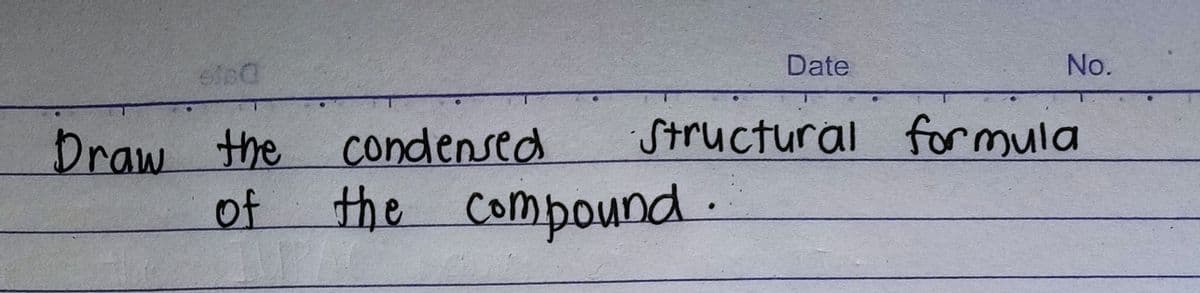 Date No.
Draw the condensed structural formula
of the compound.